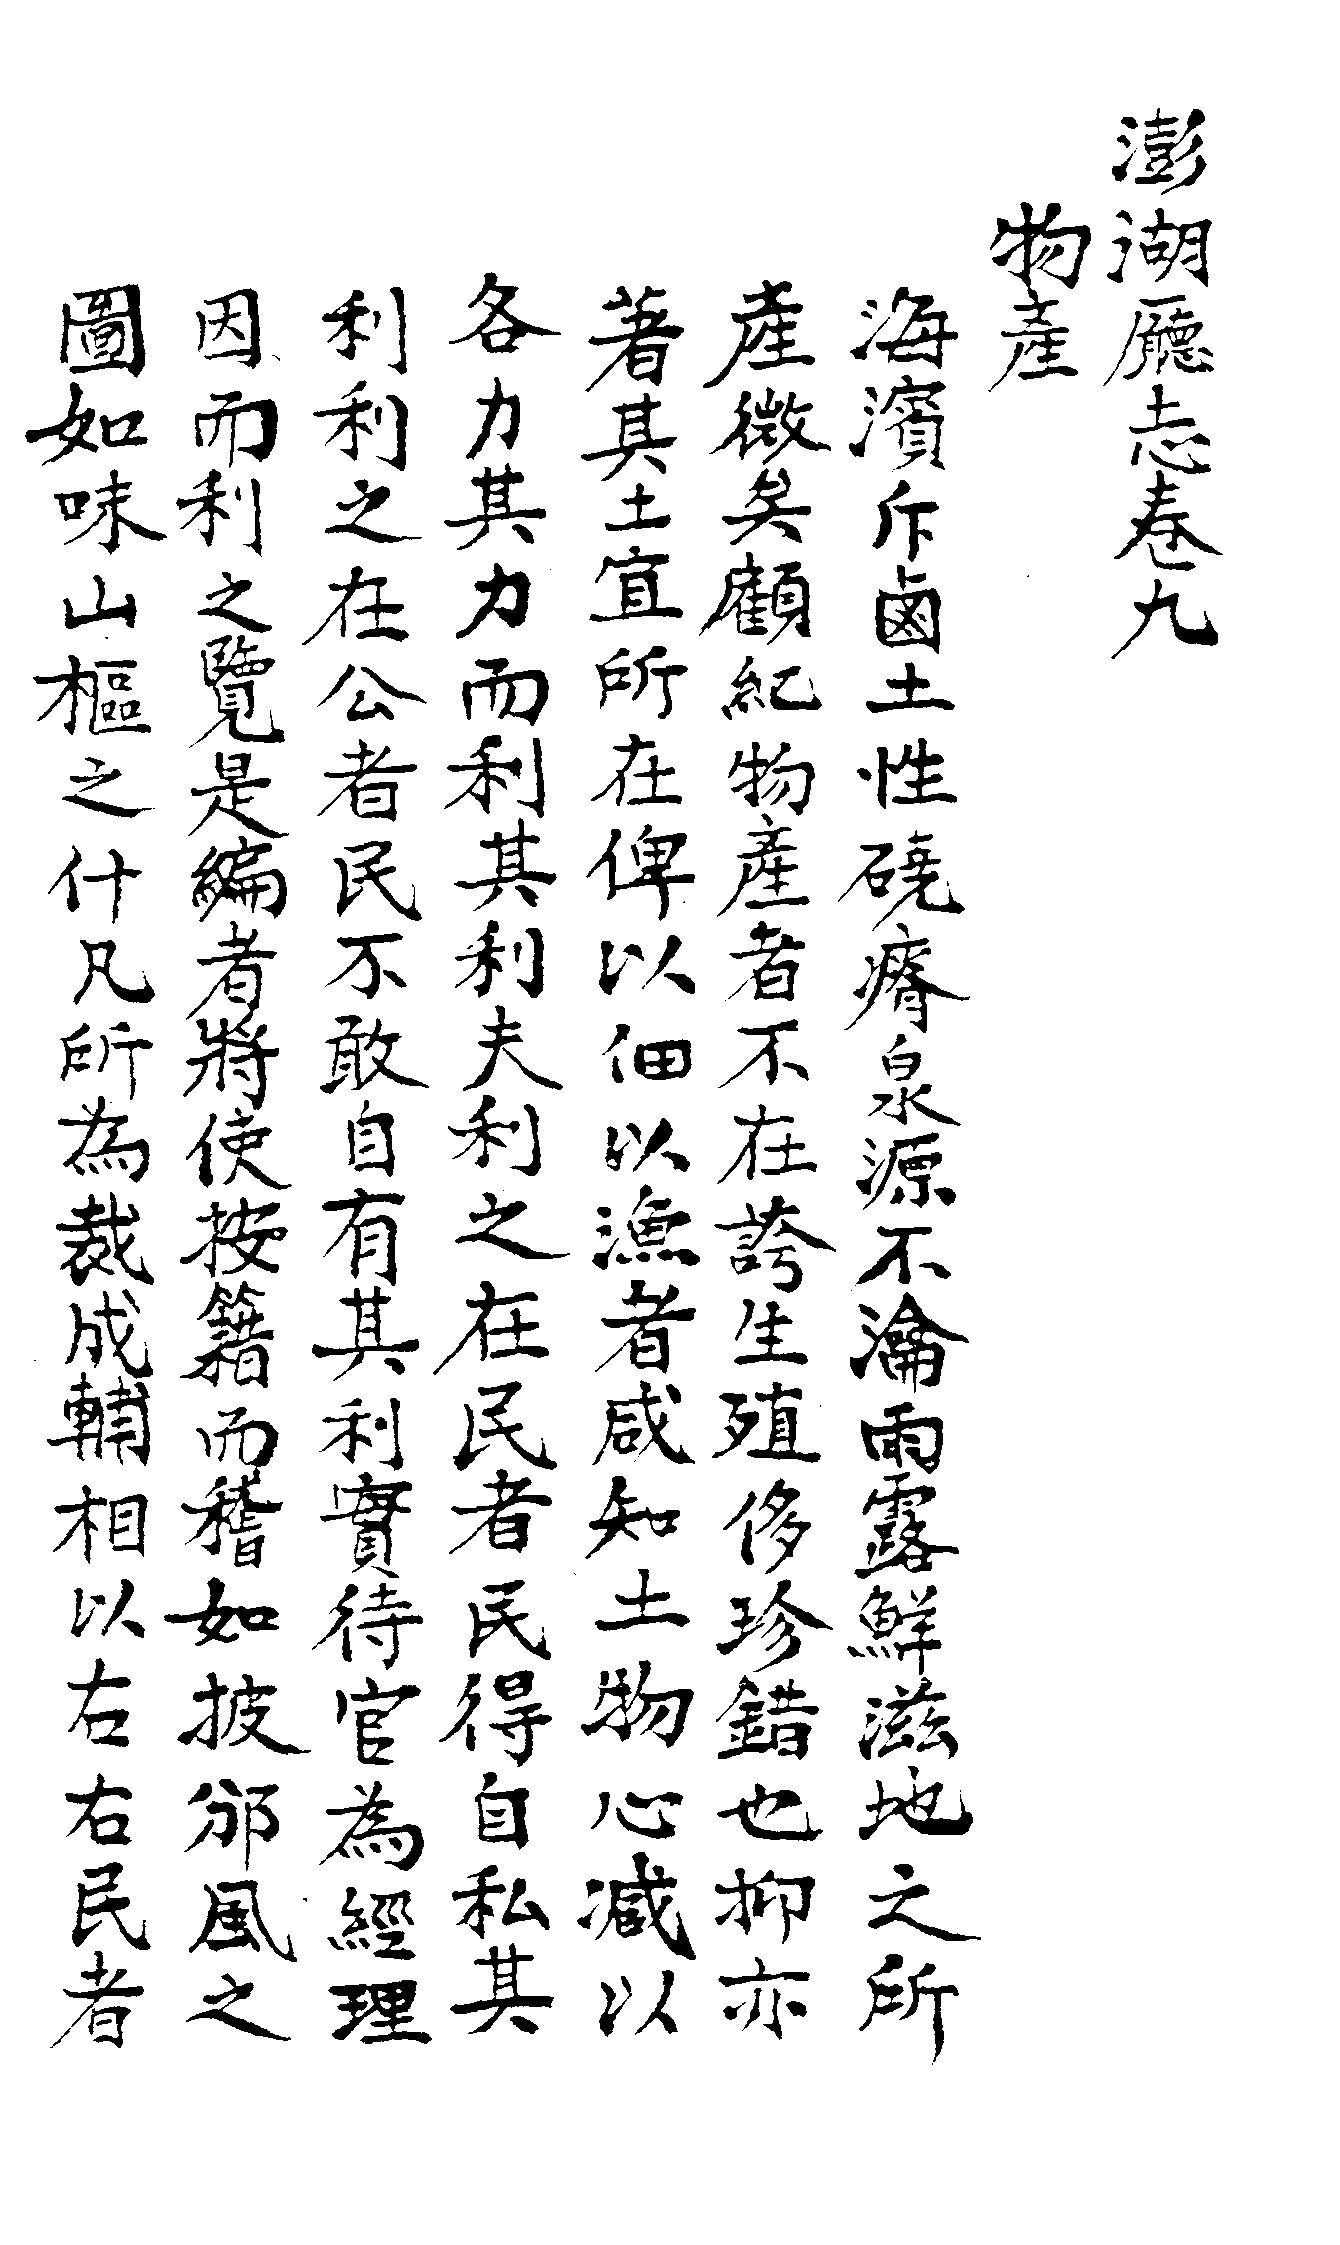 澎湖廳志卷九
物產
海濱斥鹵土性磽瘠泉源不瀹雨露鮮滋地之所
產微矣顧紀物產者不在誇生殖侈珍錯也抑亦
著其土宜所在俾以佃以漁者咸知土物心臧以
各力其力而利其利夫利之在民者民得自私其
利利之在公者民不敢自有其利實待官為經理
因而利之覽是編者將使按籍而稽如披邠風之
圖如味山樞之什凡所為裁成輔相以右右民者